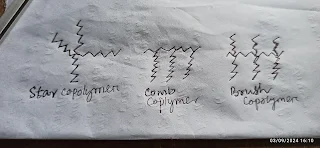 Star copolymer
Comb
Coplymer
Brush
Copolymer
03/09/2024 16:10